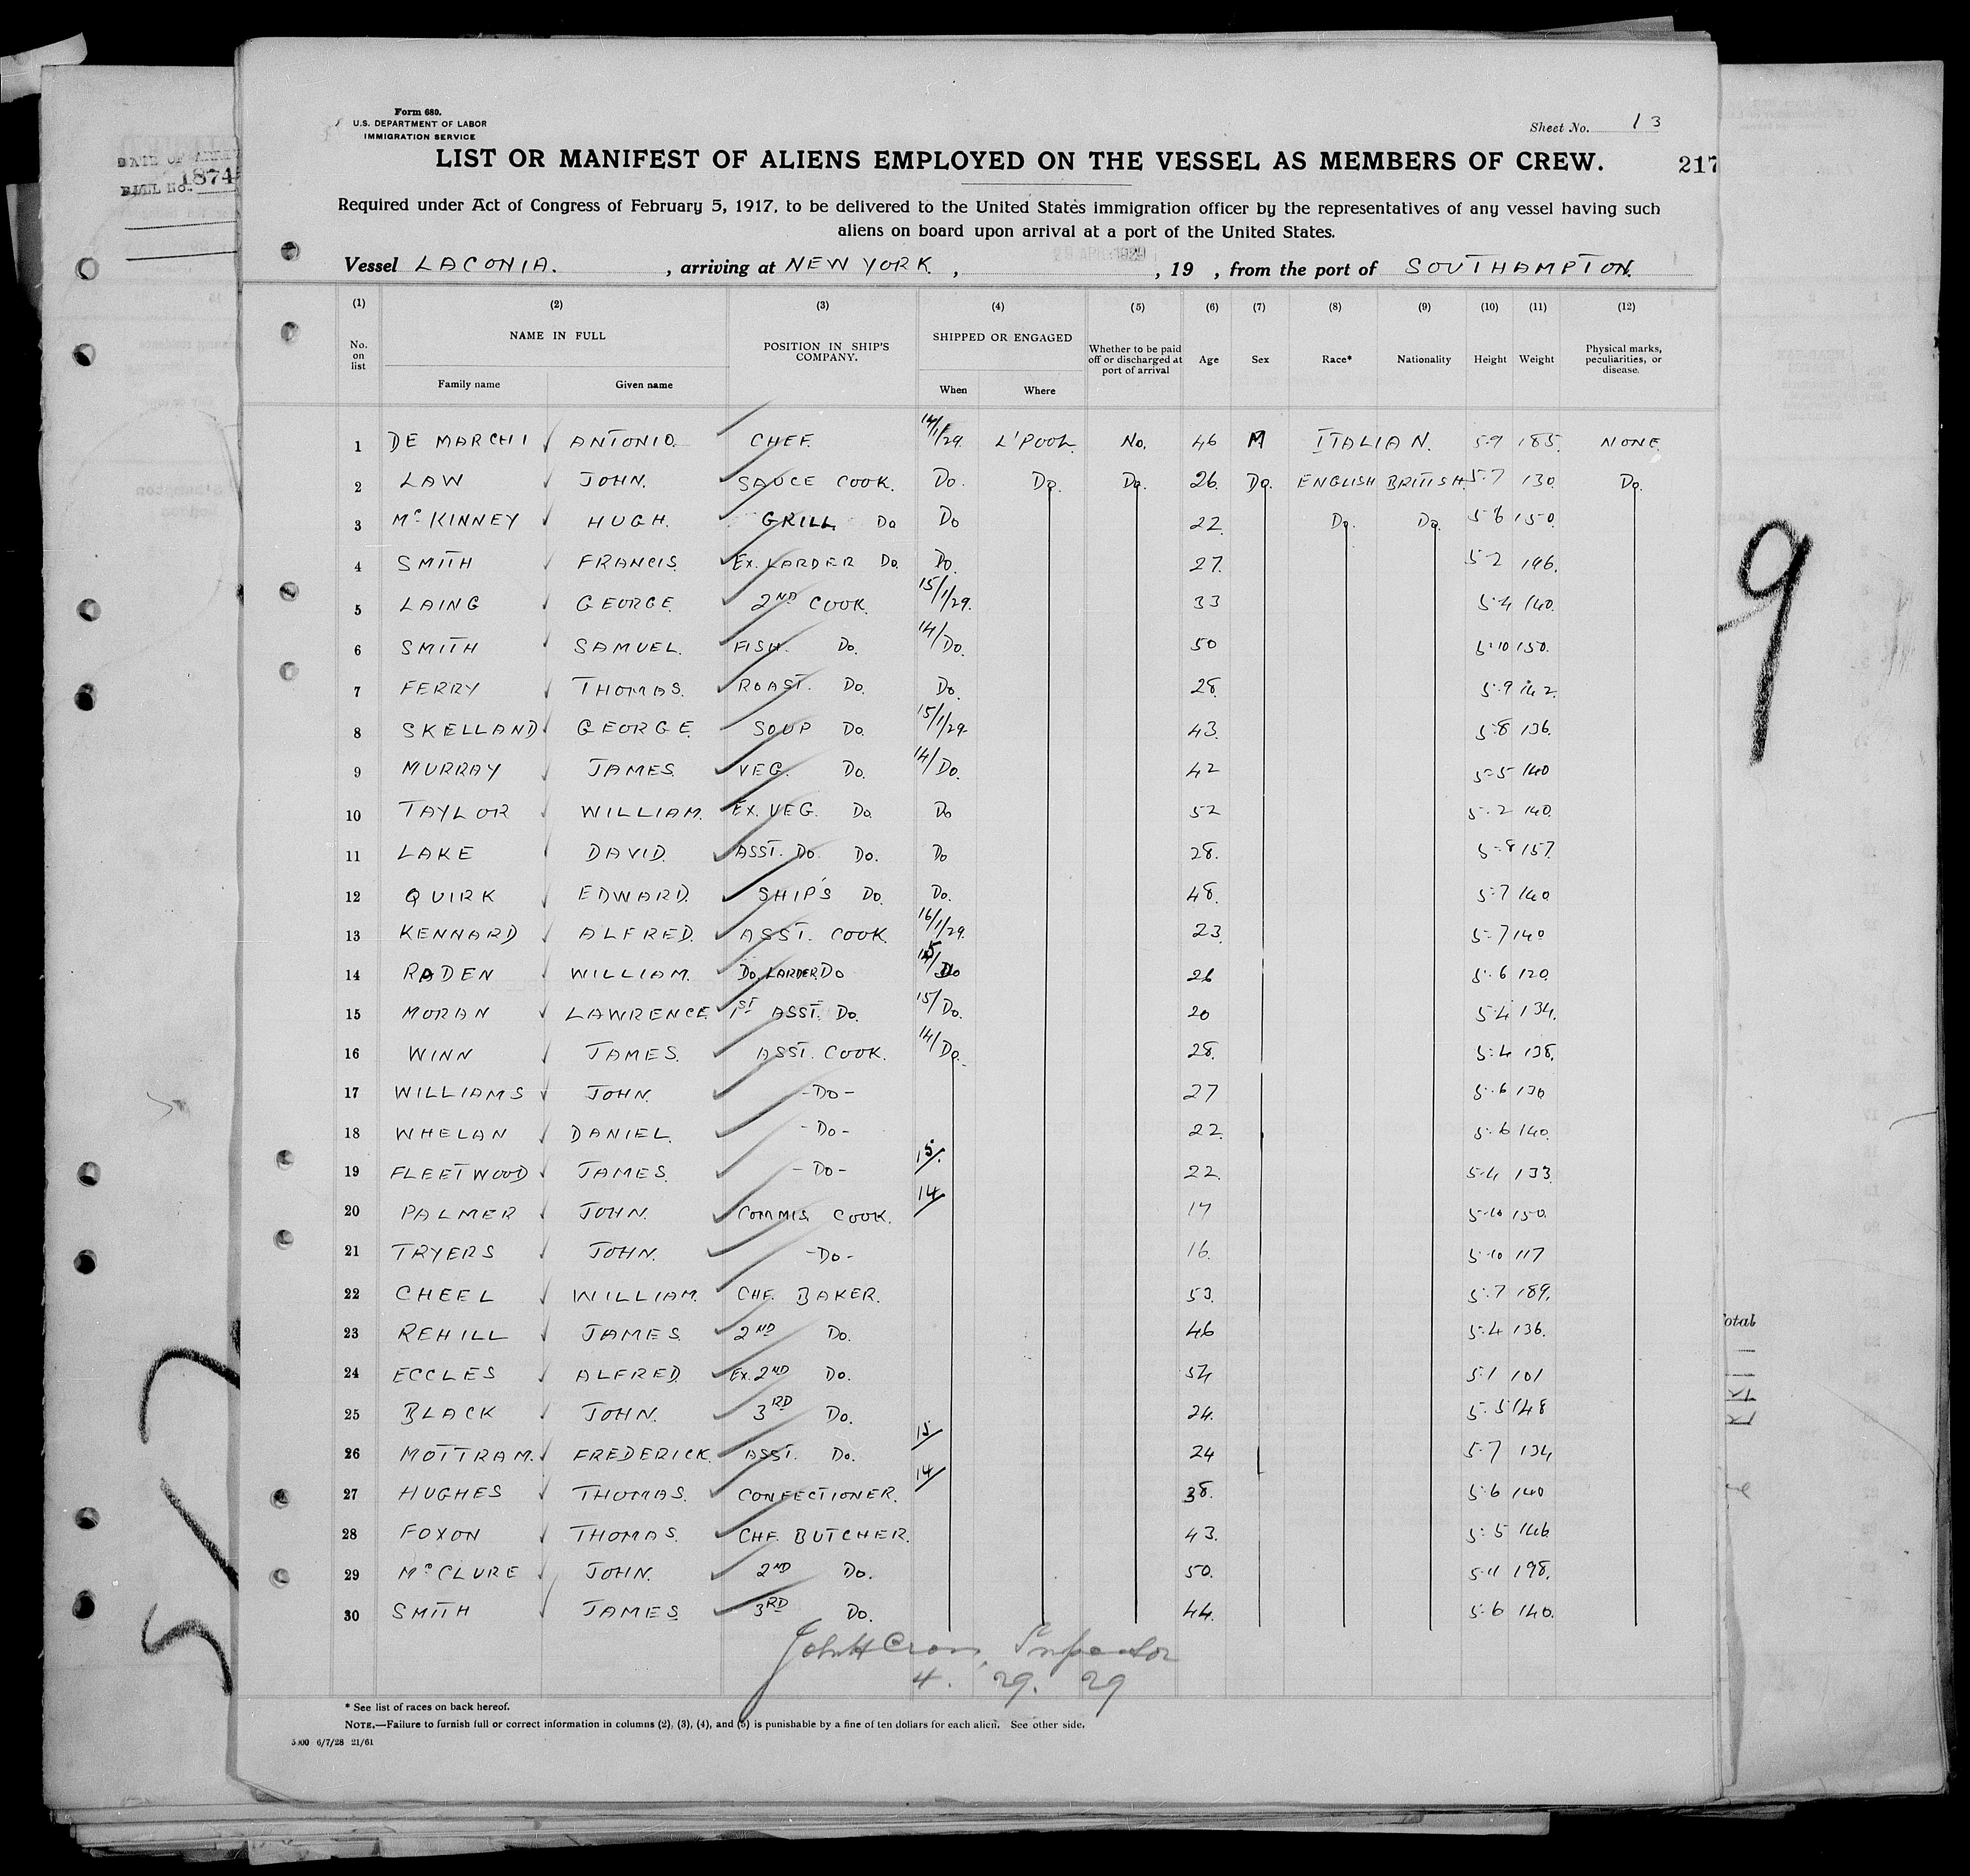 Form 680.
U.S. DEPARTMENT OF LABOR
IMMIGRATION SERVICE
Sheet No. 13
LIST OR MANIFEST OF ALIENS EMPLOYED ON THE VESSEL AS MEMBERS OF CREW.
217
1874
Required under Act of Congress of February 5, 1917, to be delivered to the United States immigration officer by the representatives of any vessel having such
aliens on board upon arrival at a port of the United States.
Vessel LACONIA. , arriving at NEW YORK. , 29 APR 1929 , 19 , from the port of SOUTHAMPTON.
(1) (2) (3) (4) (5) (6) (7) (8) (9) (10) (11) (12)
No. on list NAME IN FULL POSITION IN SHIP'S COMPANY. SHIPPED OR ENGAGED Whether to be paid off or discharged at port of arrival Age Sex Race* Nationality Height Weight Physical marks, peculiarities, or disease.
Family name Given name When Where
1 DE MARCHI ANTONIO. CHEF. 14/1/29. L'POOL. No. 46 M ITALIAN. 5.9 185. NONE.
2 LAW JOHN. SAUCE COOK. Do. Do. Do. 26. Do. ENGLISH BRITISH. 5.7 130. Do.
3 McKINNEY HUGH. GRILL Do Do 22. Do. Do. 5.6 150.
4 SMITH FRANCIS. EX. LARDER Do. Do. 27. 5.2 196.
5 LAING GEORGE. 2ND COOK. 15/1/29. 33 5.4 140.
6 SMITH SAMUEL. FISH. Do. 14/Do. 50 5.10 150.
7 FERRY THOMAS. ROAST. Do. Do. 28. 5.9 142.
8 SKELLAND GEORGE. SOUP Do. 15/1/29. 43. 5.8 136.
9 MURRAY JAMES. VEG. Do. 14/Do. 42 5.5 140
10 TAYLOR WILLIAM. EX. VEG. Do. Do 52 5.2 140.
11 LAKE DAVID. ASST. Do. Do. Do 28. 5.8 157.
12 QUIRK EDWARD. SHIP'S Do. Do. 48. 5.7 140
13 KENNARD ALFRED. ASST. COOK. 16/1/29. 23. 5.7 140
14 RADEN WILLIAM. Do. LARDER. Do 15/Do 26 5.6 120.
15 MORAN LAWRENCE. 1ST ASST. Do. 15/Do. 20 5.4 134.
16 WINN JAMES. ASST. COOK. 14/Do. 28. 5.4 138.
17 WILLIAMS JOHN. -Do- 27 5.6 130
18 WHELAN DANIEL. -Do- 22. 5.6 140.
19 FLEETWOOD JAMES. -Do- 15/. 22. 5.4 133.
20 PALMER JOHN. COMMIS COOK. 14/ 17 5.10 150.
21 TRYERS JOHN. -Do- 16. 5.10 117
22 CHEEL WILLIAM. CHF. BAKER. 53. 5.7 189.
23 REHILL JAMES. 2ND Do. 46 5.4 136.
24 ECCLES ALFRED. EX. 2ND Do. 54 5.1 101
25 BLACK JOHN. 3RD Do. 24. 5.5 148
26 MOTTRAM. FREDERICK. ASST. Do. 15/ 24 5.7 134
27 HUGHES THOMAS. CONFECTIONER. 14/ 38. 5.6 140
28 FOXON THOMAS. CHF. BUTCHER. 43. 5.5 146
29 McCLURE JOHN. 2ND Do. 50. 5.11 198.
30 SMITH JAMES 3RD Do. 44. 5.6 140.
John H Cross, Inspector
4. 29. 29
* See list of races on back hereof.
NOTE.—Failure to furnish full or correct information in columns (2), (3), (4), and (5) is punishable by a fine of ten dollars for each alien. See other side.
5000 6/7/28 21/61
9